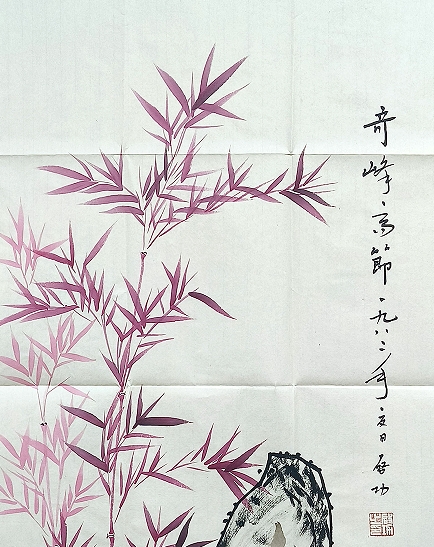 奇峰高節一九八二年夏日启功